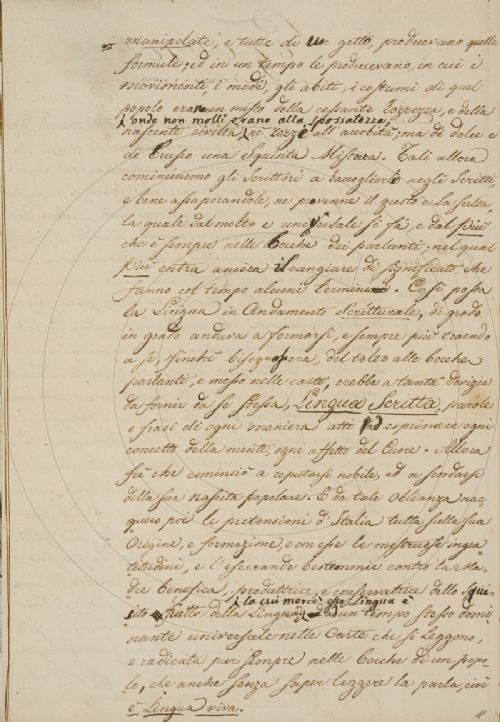 manipolate, e tutte di un getto, producevano quelle
formule; ed in un tempo le producevano, in cui i
movimenti, i modi, gli abiti, i costumi di quel
popolo eran un misto della cessante rozzezza, e della
onde non molli erano alla spossatezza,
nascente civiltà, nè all'acerbità; ma di dolce e
di brusco una squisita Mistura. Tali allora
cominciarono gli Scrittori a raccoglierle negli Scritti
e bene assaporandole, ne provenne il gusto e la scelta
la quale dal molto e universale si fà, e dal più
che è sempre nelle bocche dei parlanti; nel qual
più entra ancora il cangiare di significati, che
fanno col tempo alcuni termini. Così posta
la Lingua in andamento Scritturale, di grado
in grado andava a formarsi, e sempre più traendo
a sè, finchè bisogno era, del tolto alle bocche
parlanti, e messo nelle carte, crebbe a tanta dovizia
da fornir da se stessa, Lingua Scritta, parole
e frasi di ogni maniera atti ad esprimere ogni
concetto della mente, ogni affetto del Cuore. Allora
fù che cominciò a reputarsi nobile, ed a scordarsi
della sua nascita popolare. E da tale oblianza nac-
quero poi le pretensioni d'Italia tutta sulla sua
origine, e formazione, e con esse le mostruose ingra
titudini, e l'esecrande bestemmie contro la Ma-
dre benefica, produttrice, e conservatrice dello squi-
sito frutto della Lingua,
la cui mercè essa Lingua è
ad un tempo stesso domi-
nante universale nelle Carte che si leggono,
e radicata pur sempre nelle bocche di un popo-
lo, che anche senza saper leggere la parla, cioè
è Lingua viva.